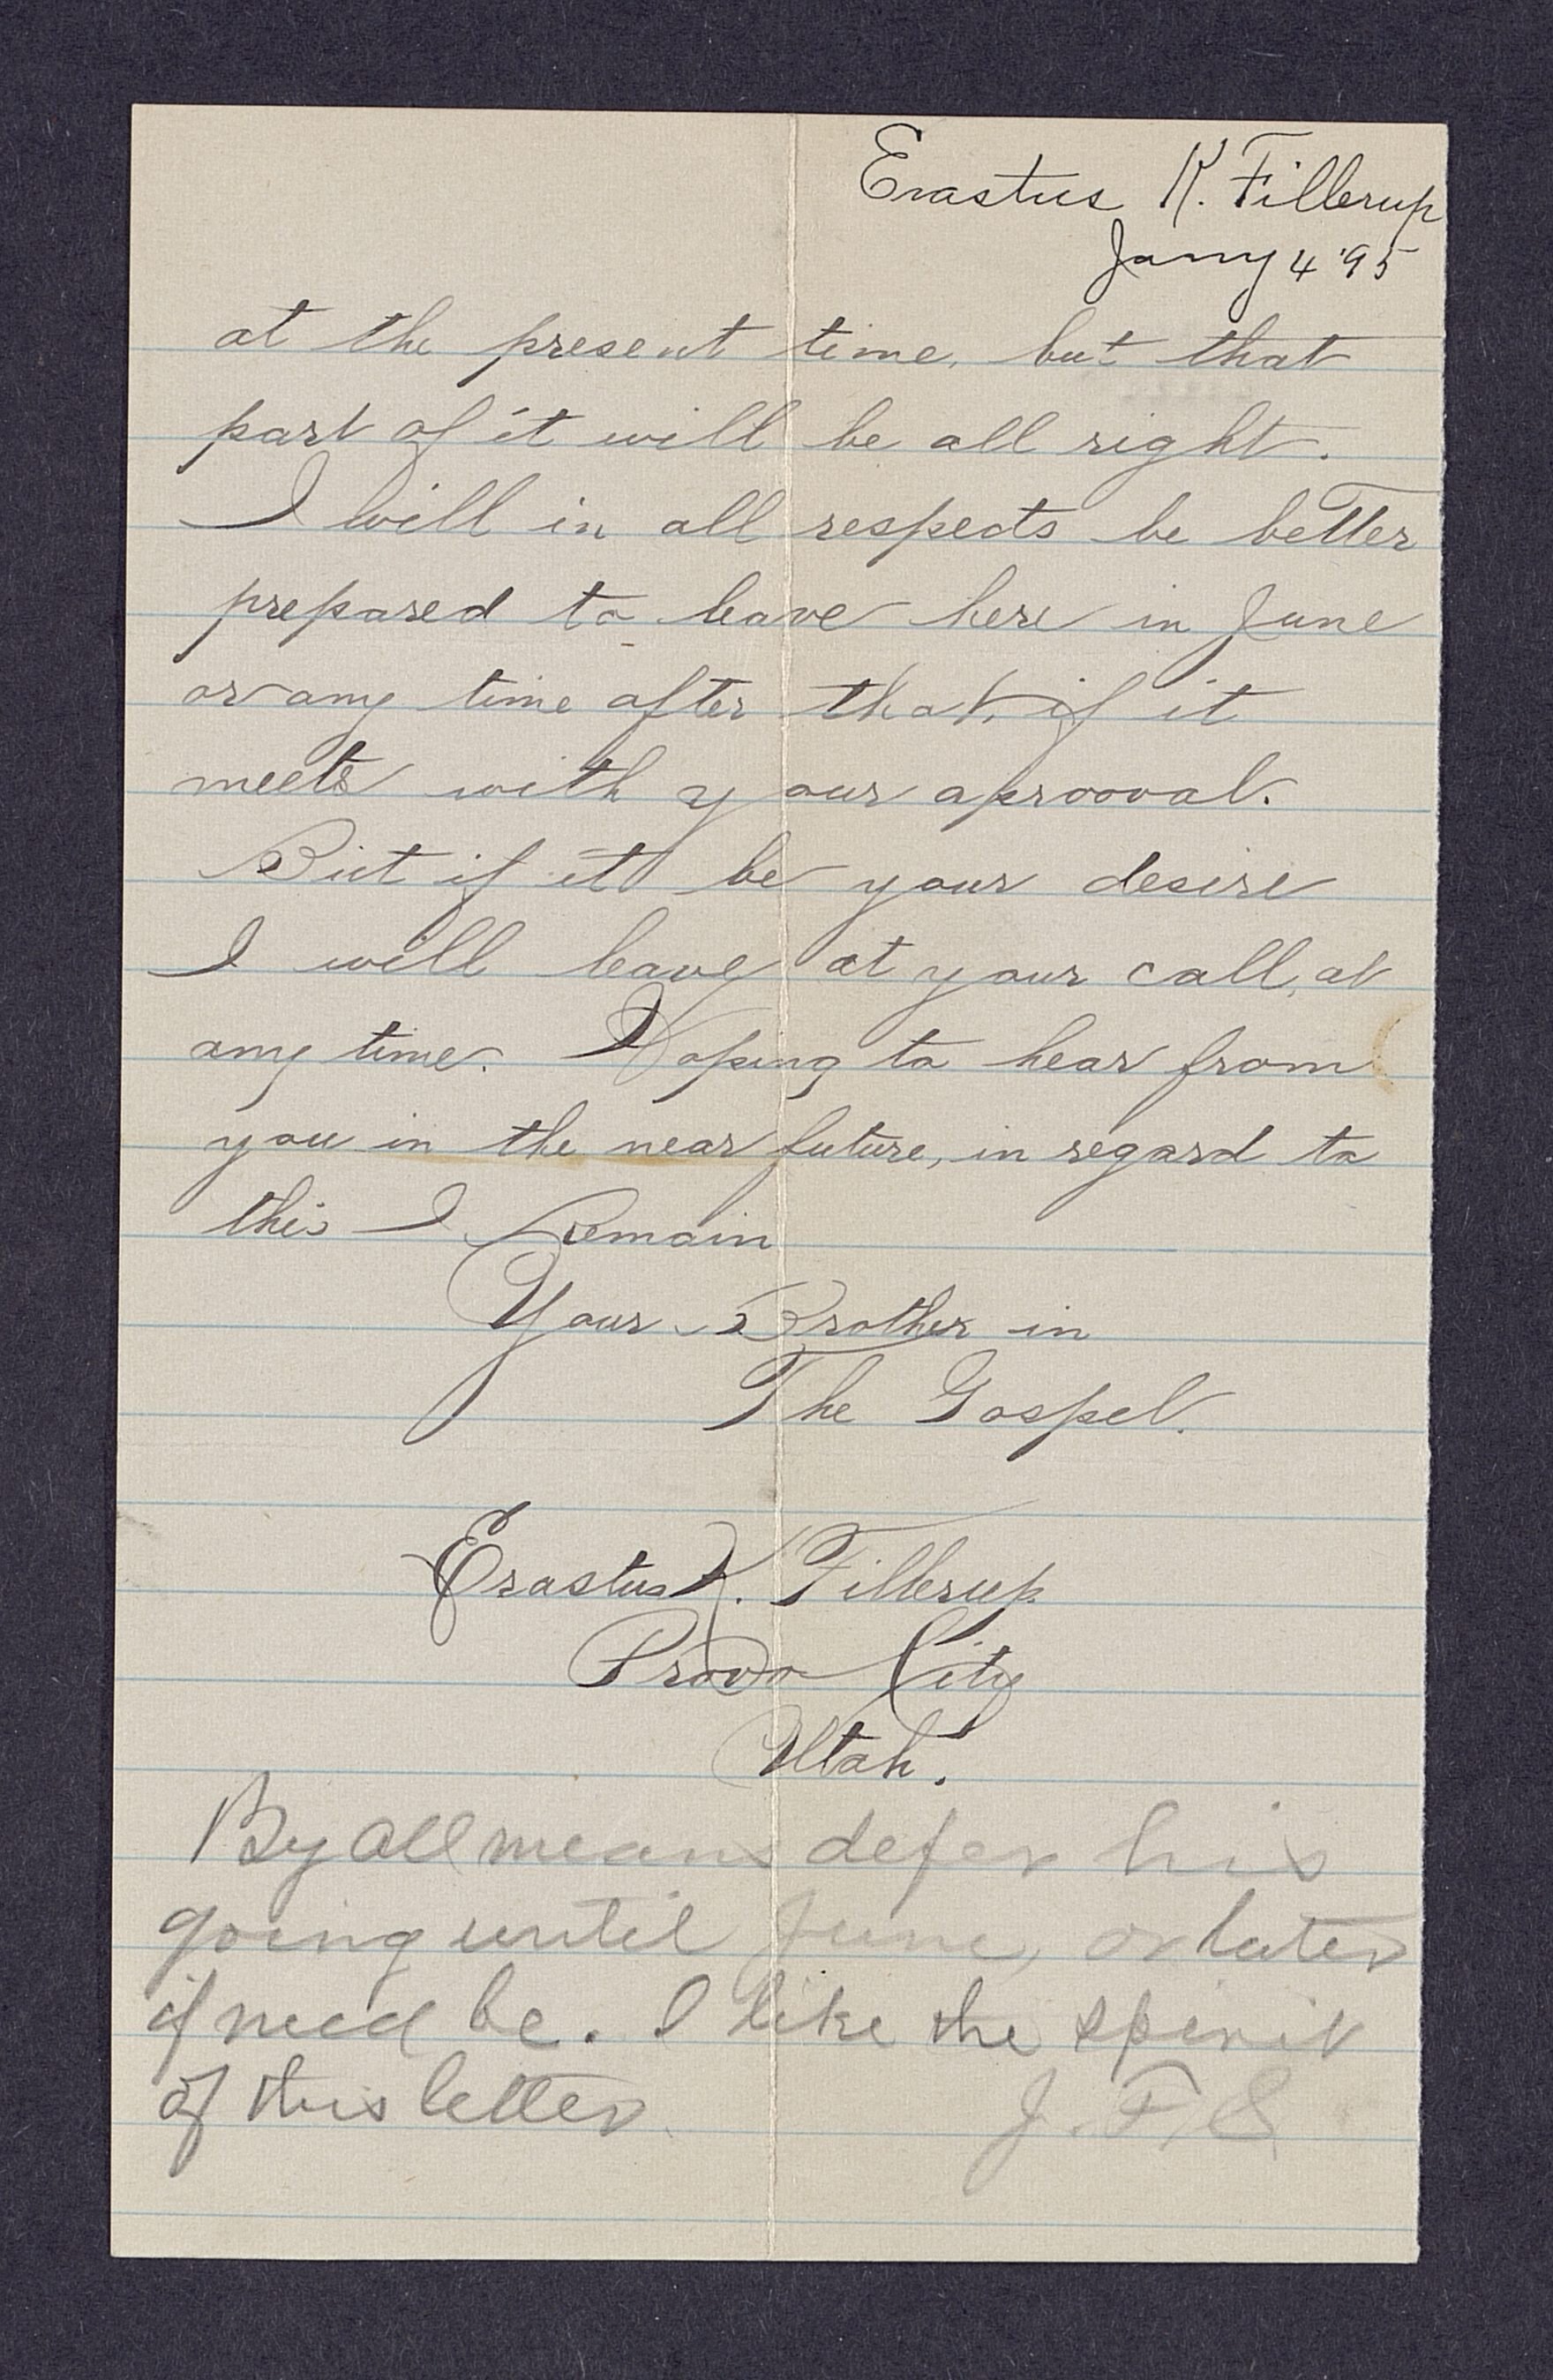 Erastus K. Fillerup
Jany 4 '95
at the present time, but that
part of it will be all right.
I will in all respects be better
prepared to leave here in June
or any time after that, if it
meets with your aprooval.
But if it be your desire
I will leave at your call, at
any time. Hoping to hear from
you in the near future, in regard to
this I Remain
Your Brother in
The Gospel.
Erastus K. Fillerup
Provo City
Utah.
By all means defer his
going until June, or later
if need be. I like the spirit
of this letter.
J. F. S.